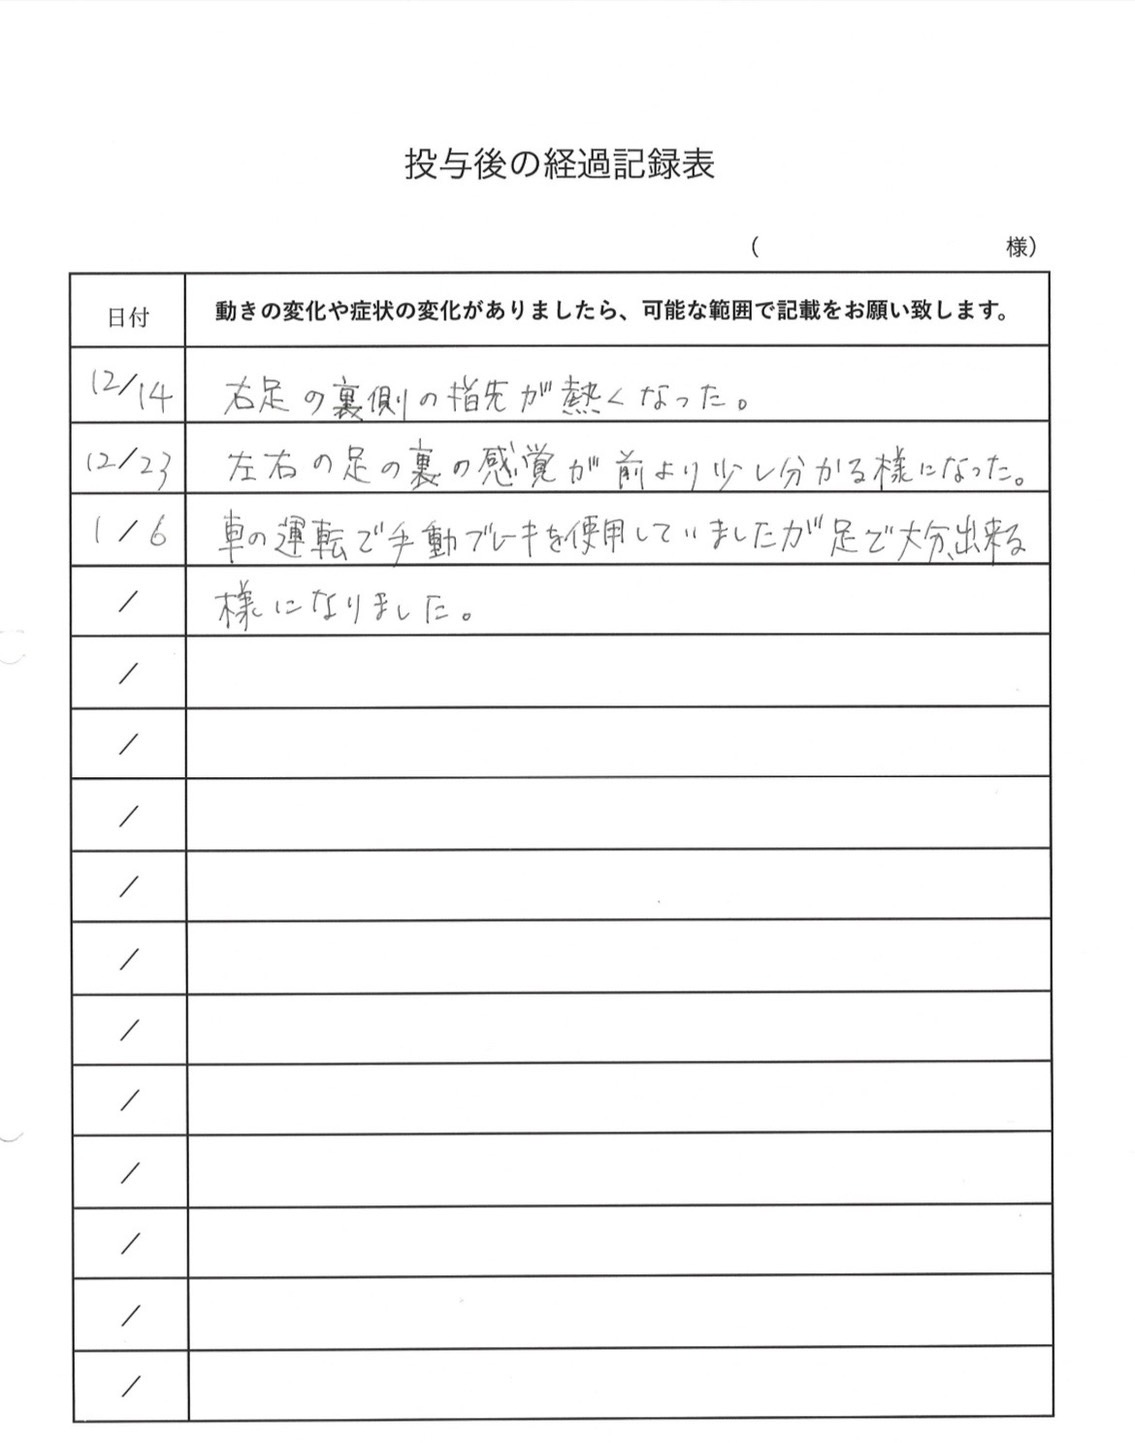 投与後の経過記録表
( 様)
日付 動きの変化や症状の変化がありましたら、可能な範囲で記載をお願い致します。
12/14 右足の裏側の指先が熱くなった。
12/23 左右の足の裏の感覚が前より少し分かる様になった。
1/6 車の運転で手動ブレーキを使用していましたが足で大分出来る
/ 様になりました。
/
/
/
/
/
/
/
/
/
/
/